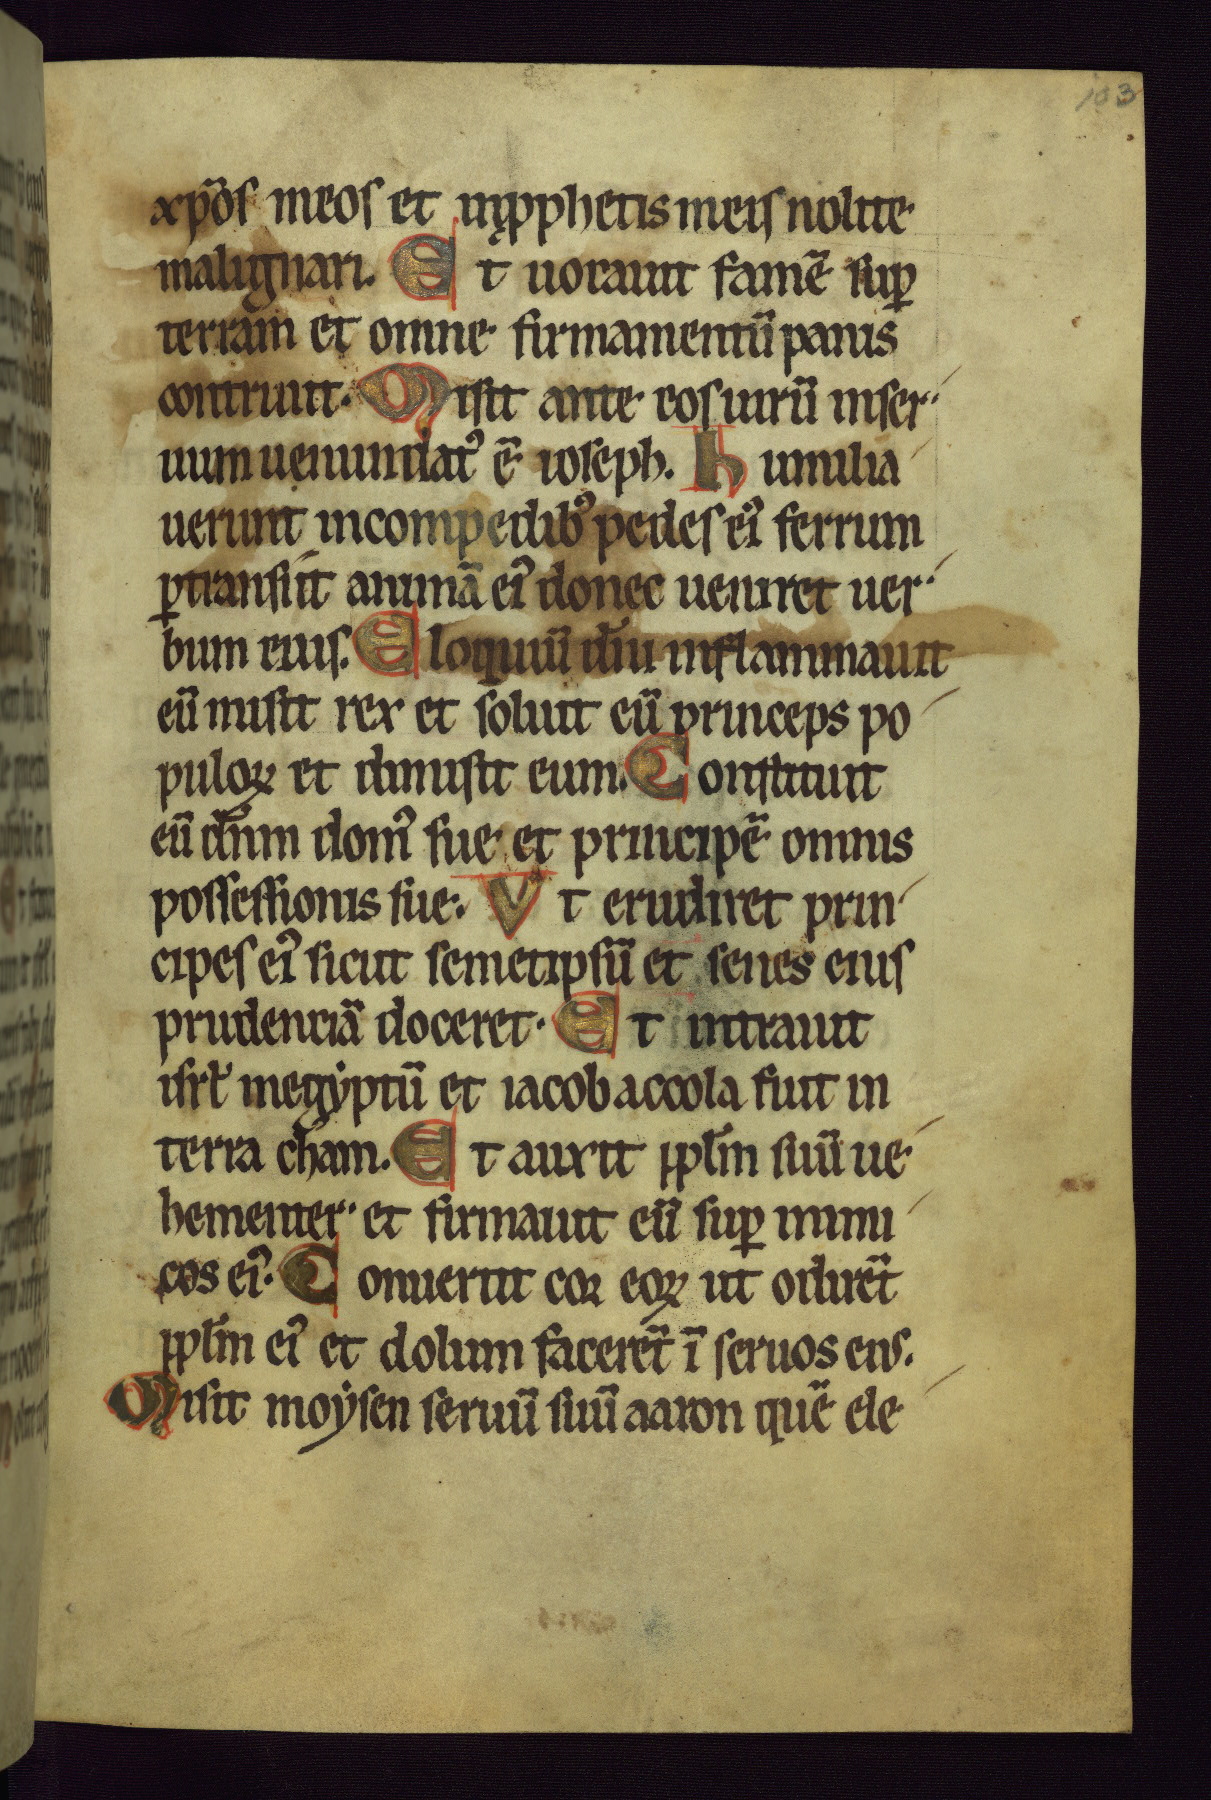 103
xp̄os meos et in ꝓphetis meis nolite
malignari. Et uocauit famē suꝑ
terram et omne firmamentū panis
contriuit. Misit ante eos uirū in ser
uum uenundatꝰ ē ioseph. Humilia
uerunt in compedibꝰ pedes eiꝰ ferrum
ꝑtransiit animā eiꝰ donec ueniret uer
bum eius. Eloquiū dn̄i inflammauit
eū misit rex et soluit eū princeps po
puloꝝ et dimisit eum. Constituit
eū dn̄m domꝰ sue et principē omnis
possessionis sue. Vt erudiret prin
cipes eiꝰ sicut semetipsū et senes eius
prudenciā doceret. Et intrauit
isrl̄ in egẏptū et iacob accola fuit in
terra cham. Et auxit ppl̄m suū ue
hementer et firmauit eū suꝑ inimi
cos eiꝰ. Conuertit cor eoꝝ ut odirēt
ppl̄m eiꝰ et dolum facerēt ī seruos eiꝰ.
Misit moẏsen seruū suū aaron quē ele